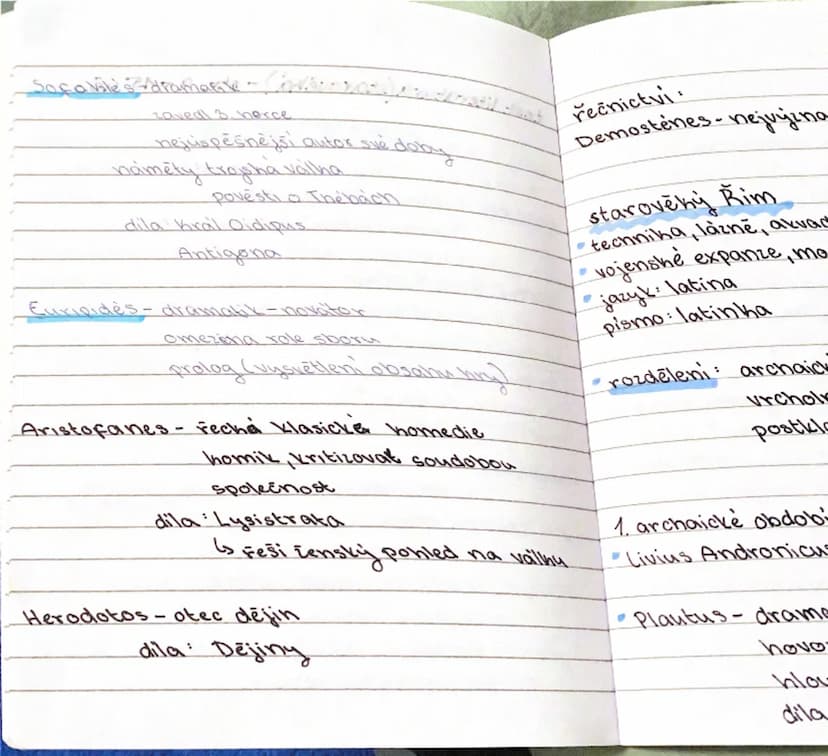 Sofoklés - dramatik -
zavedl 3. herce
nejúspěšnější autor své doby
náměty trojská válka
pověsti o Thébách
díla: Král Oidipus
Antigona
Euripidés - dramatik - novátor
omezena role sboru
prolog (vysvětlení obsahu hry)
Aristofanes - řecká klasické komedie
komik, kritizoval soudobou
společnost
díla: Lysistrata
↳ řeší ženský pohled na válku
Herodotos - otec dějin
díla: Dějiny
řečnictví:
Demosténes - nejvýzna
starověký Řím
• technika, lázně, akvad
• vojenské expanze, mo
• jazyk: latina
písmo: latinka
• rozdělení: archaick
vrchol
postkla
1. archaické období
• Livius Andronicu
• Plautus - drama
hovo
hlav
díla